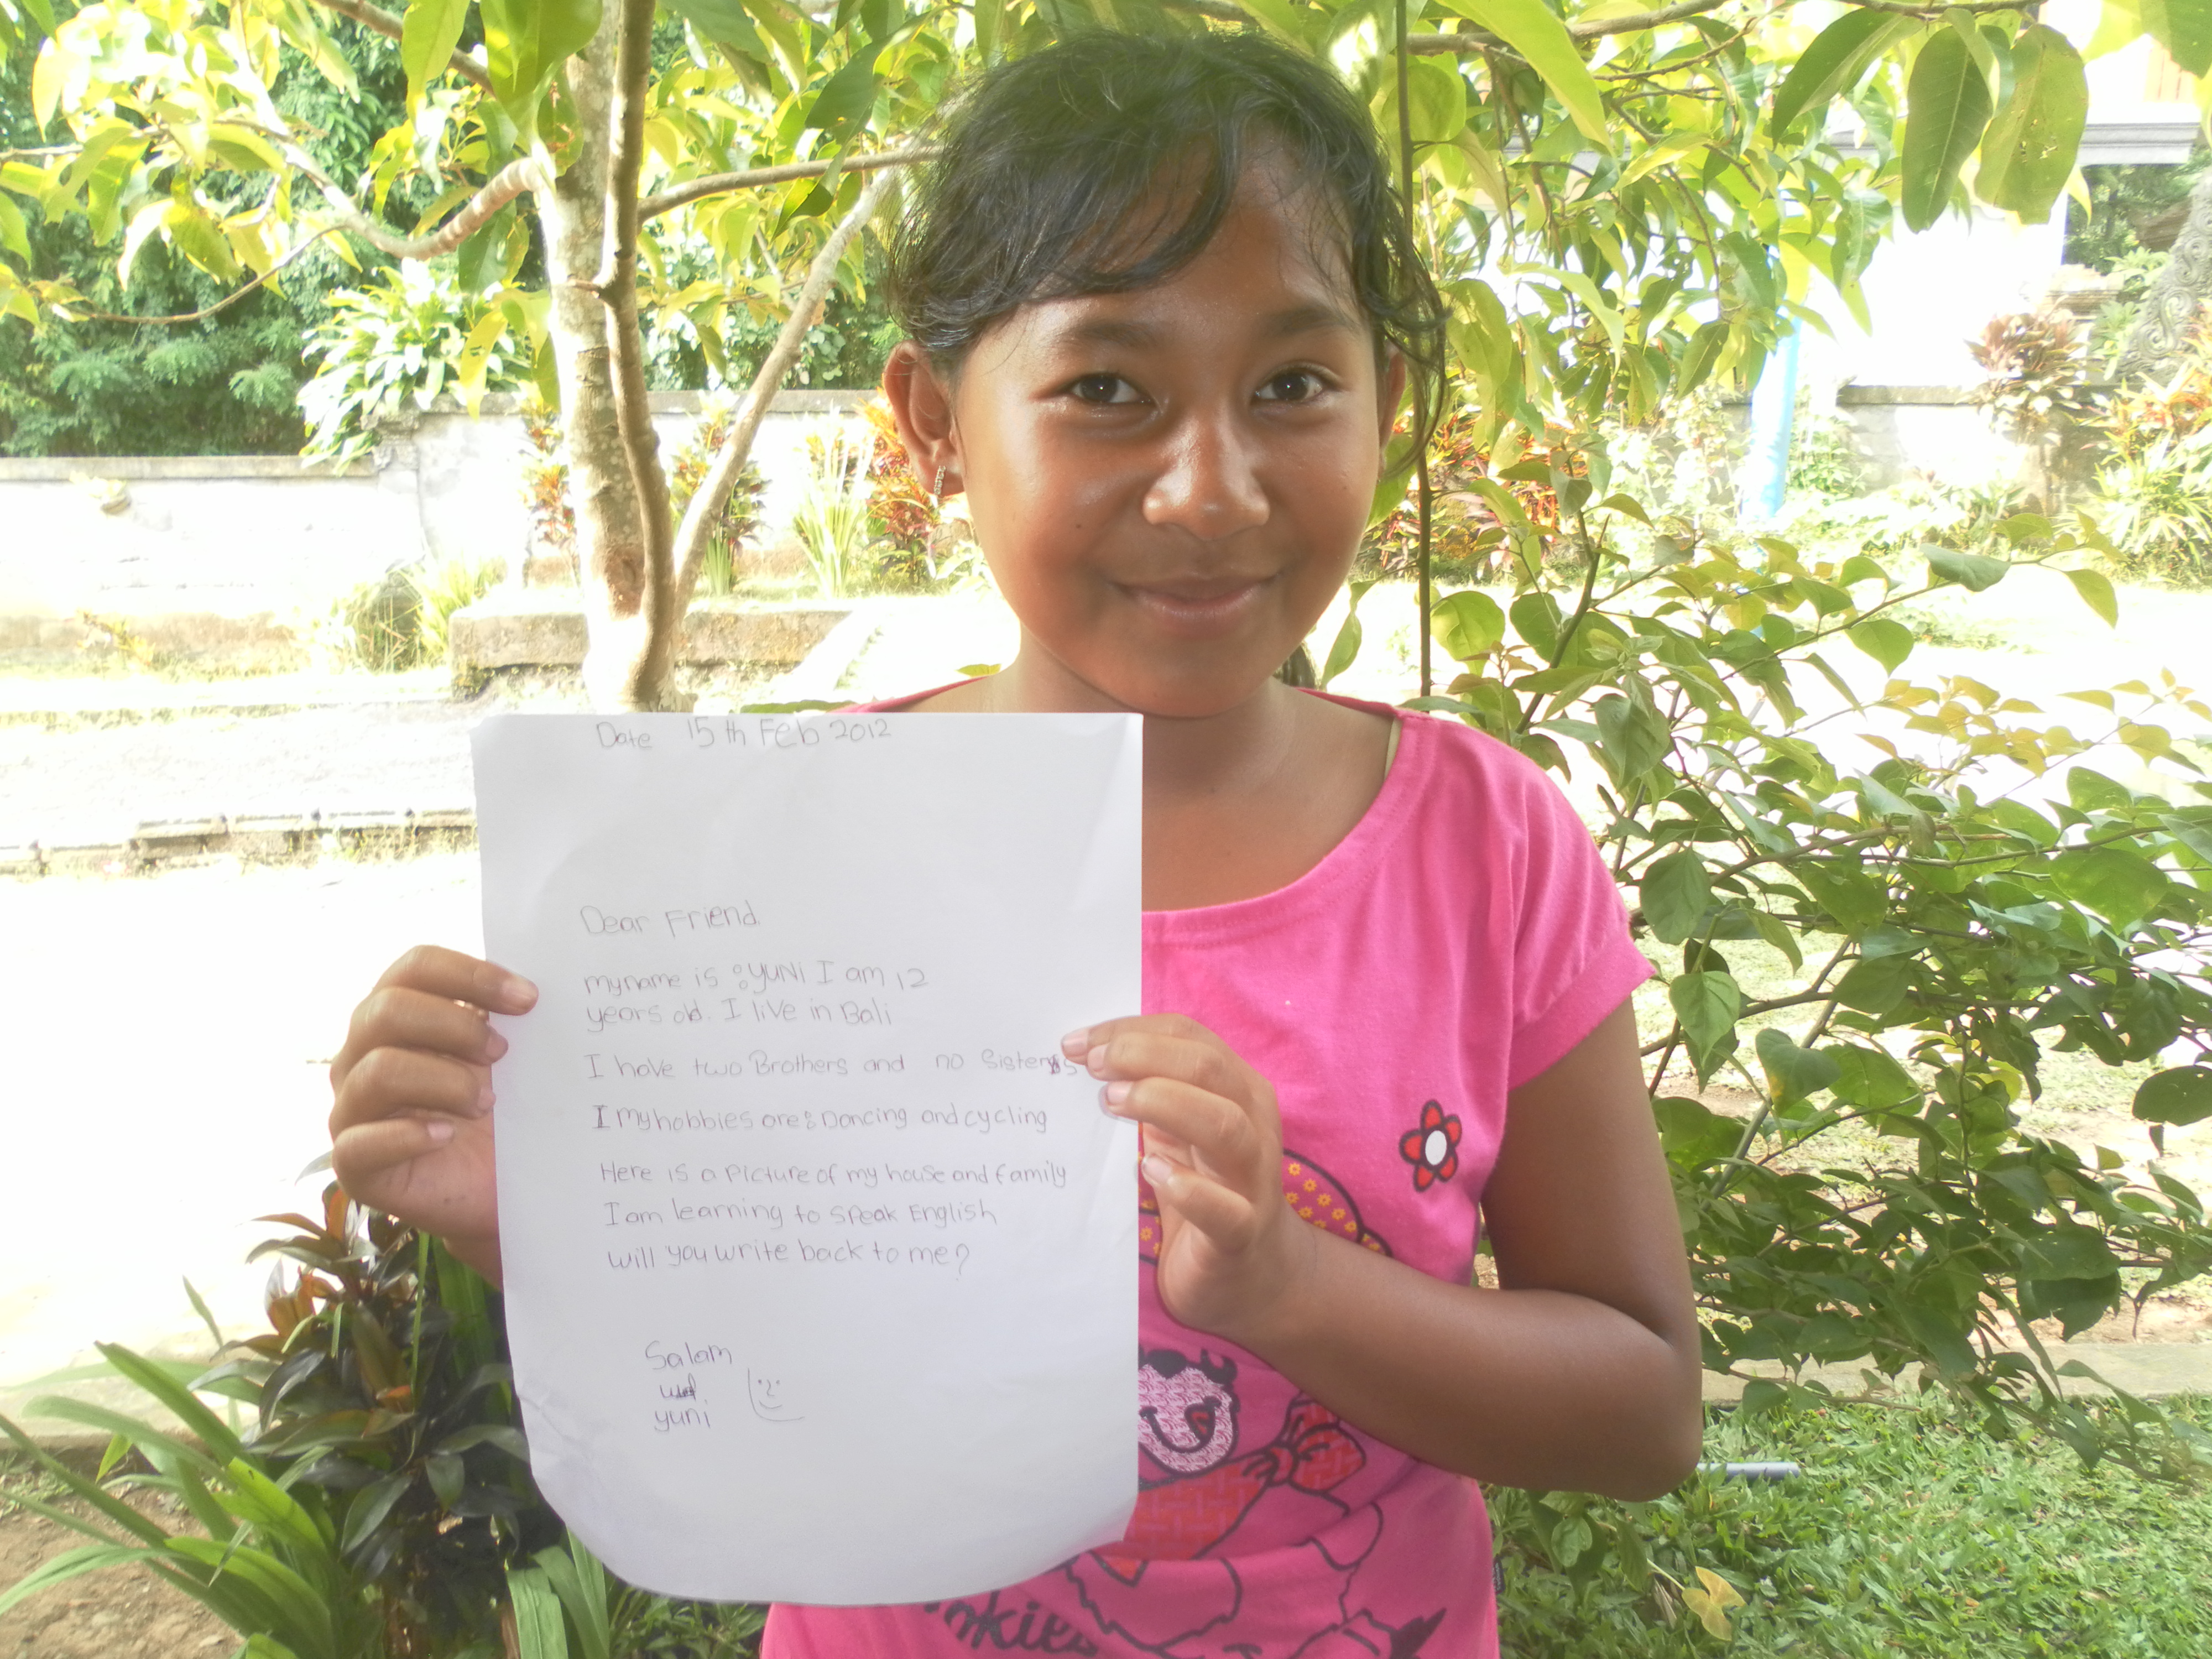 Date 15th Feb 2012
Dear Friend.
my name is : YUNi I am 12
years old. I live in Bali
I have two Brothers and no Sisters
I My hobbies are : Dancing and cycling
Here is a Picture of my house and family
I am learning to Speak English
will you write back to me?
Salam
yuni